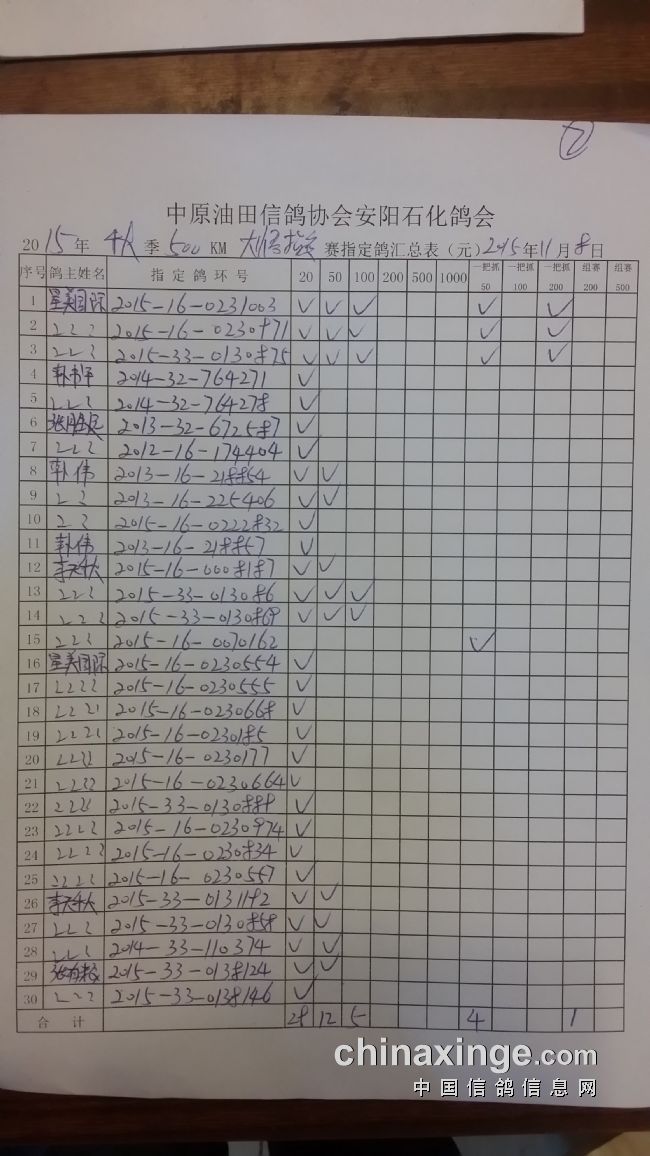 ②
中原油田信鸽协会安阳石化鸽会
2015年 秋 季 500 KM 大馆指定 赛指定鸽汇总表（元）2015年11月8日
序号 鸽主姓名 指 定 鸽 环 号 20 50 100 200 500 1000 一把抓50 一把抓100 一把抓200 组赛200 组赛500
1 星美国际 2015-16-0231003 ✓ ✓ ✓ ✓ ✓
2 2015-16-0230971 ✓ ✓ ✓ ✓ ✓
3 2015-33-0130875 ✓ ✓ ✓ ✓ ✓
4 2014-32-764271 ✓
5 2014-32-764278 ✓
6 2013-32-672587 ✓
7 2012-16-174404 ✓
8 韩伟 2013-16-218854 ✓ ✓
9 2013-16-225406 ✓ ✓
10 2015-16-0222832 ✓
11 韩伟 2013-16-218857 ✓
12 2015-16-0008187 ✓ ✓
13 2015-33-013086 ✓ ✓ ✓
14 2015-33-0130869 ✓ ✓ ✓
15 2015-16-0070162 ✓
16 星美国际 2015-16-0230554 ✓
17 2015-16-0230555 ✓
18 2015-16-0230668 ✓
19 2015-16-0230185 ✓
20 2015-16-0230177 ✓
21 2015-16-0230664 ✓
22 2015-33-0130889 ✓
23 2015-16-0230974 ✓
24 2015-16-0230834 ✓
25 2015-16-0230557 ✓
26 2015-33-0131192 ✓ ✓
27 2015-33-0130858 ✓ ✓
28 2014-33-110374 ✓ ✓
29 2015-33-0138124 ✓ ✓
30 2015-33-0138146 ✓
合 计 28 12 5 4 1
chinaxinge.com
中国信鸽信息网